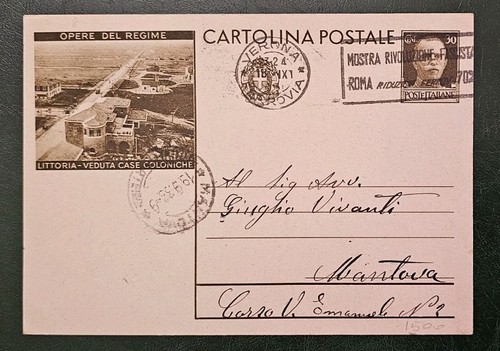 OPERE DEL REGIME
CARTOLINA POSTALE
30
VERONA
FERROVIA
MOSTRA RIVOLUZIONE FASCISTA
ROMA RIDUZIONI FERR. 70%
POSTE ITALIANE
LITTORIA - VEDUTA CASE COLONICHE
MANTOVA
Al Sig Avv.
Giuglio Vivanti
Mantova
Corso V. Emanuele N° 2
1500